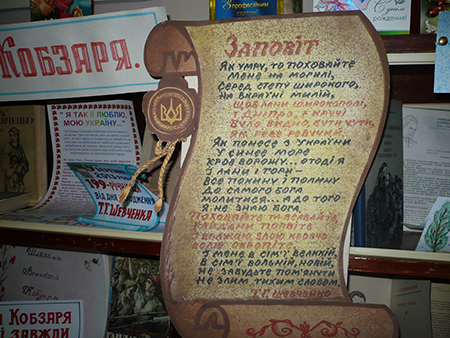 Професійний
З Днем
рождения!
КОБЗАРЯ.
"Я ТАК ЇЇ ЛЮБЛЮ,
МОЮ УКРАЇНУ..."
199-річчю
ВІД ДНЯ НАРОДЖЕННЯ
Т.Г. ШЕВЧЕНКА
Заповіт
ЯК УМРУ, ТО ПОХОВАЙТЕ
МЕНЕ НА МОГИЛІ,
СЕРЕД СТЕПУ ШИРОКОГО,
НА ВКРАЇНІ МИЛІЙ,
ЩОБ ЛАНИ ШИРОКОПОЛІ,
І ДНІПРО, І КРУЧІ
БУЛО ВИДНО, БУЛО ЧУТИ,
ЯК РЕВЕ РЕВУЧИЙ.
ЯК ПОНЕСЕ З УКРАЇНИ
У СИНЄЄ МОРЕ
КРОВ ВОРОЖУ... ОТОДІ Я
І ЛАНИ І ГОРИ -
ВСЕ ПОКИНУ І ПОЛИНУ
ДО САМОГО БОГА
МОЛИТИСЯ... А ДО ТОГО
Я НЕ ЗНАЮ БОГА.
ПОХОВАЙТЕ ТА ВСТАВАЙТЕ,
КАЙДАНИ ПОРВІТЕ
І ВРАЖОЮ ЗЛОЮ КРОВ'Ю
ВОЛЮ ОКРОПІТЕ.
І МЕНЕ В СІМ'Ї ВЕЛИКІЙ,
В СІМ'Ї ВОЛЬНІЙ, НОВІЙ,
НЕ ЗАБУДЬТЕ ПОМ'ЯНУТИ
НЕ ЗЛИМ ТИХИМ СЛОВОМ.
Т.Г. ШЕВЧЕНКО
Шляхами
Великого
Кобзаря
Кобзаря
і завжди